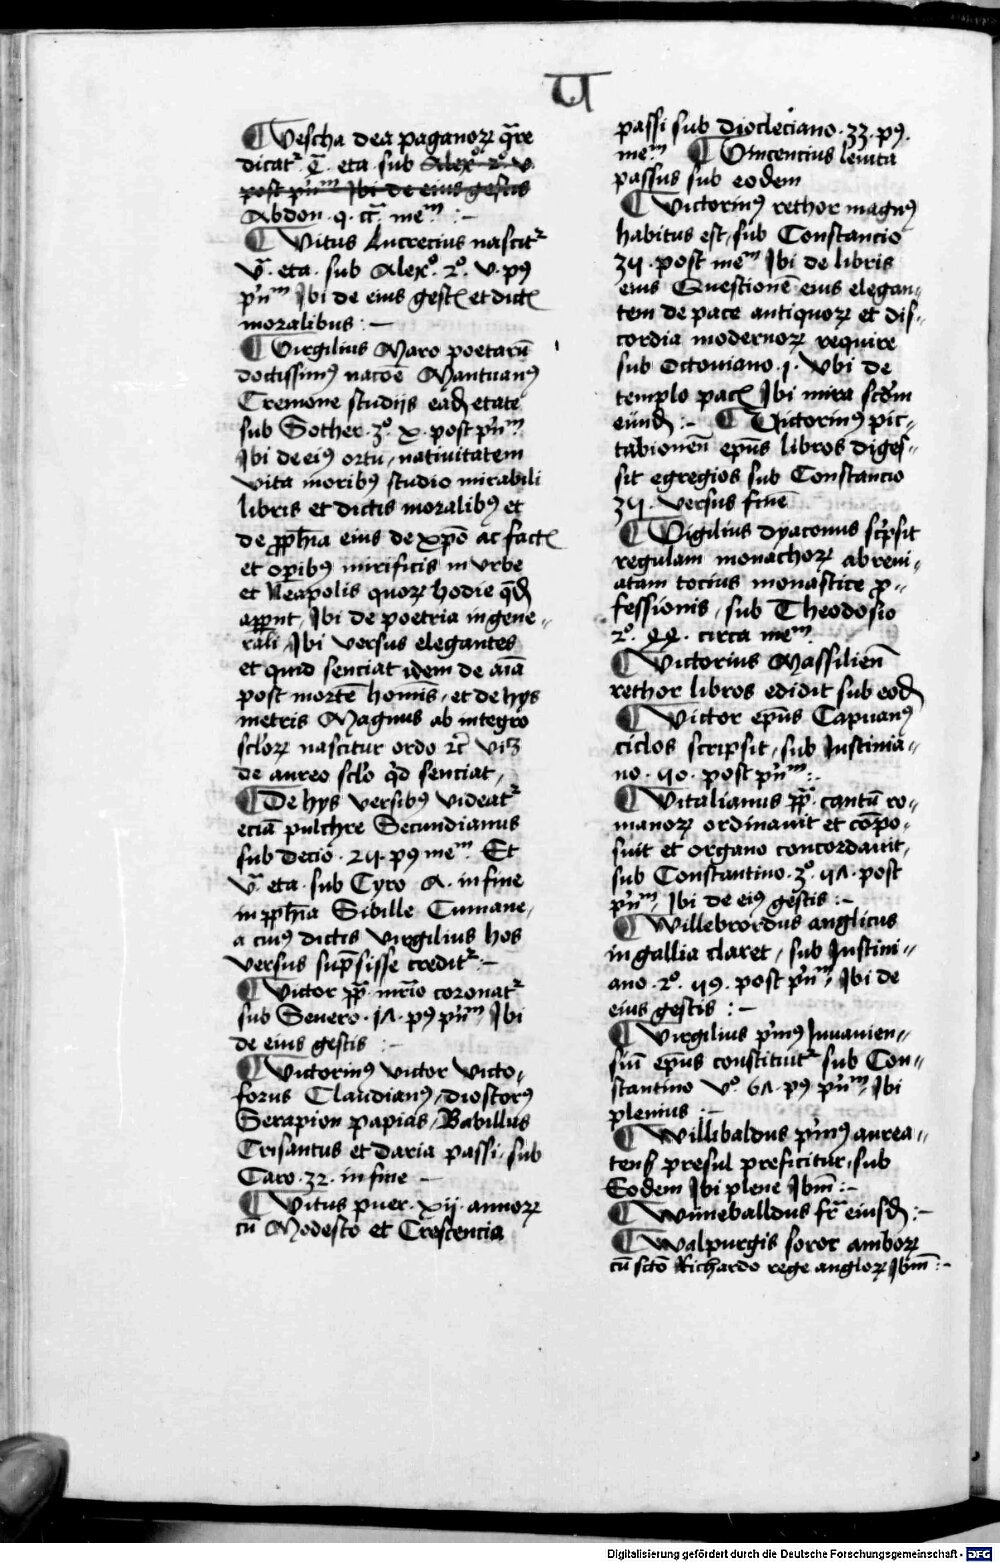 U
¶ Vescha dea paganoꝝ q̄re
dicatr̄ ·C̄· eta· sub Alexº 2º· v·
post pn̄m Ibi de eius gestis
Abdon · q · cc̄ · mem̄ :-
¶ Vitus Lucrecius nascitr̄
v̄ª· eta· sub Alexº· 2º· v· pꝰ
pn̄m Ibi de eius gestꝭ et dictꝭ
moralibus :-
¶ Virgilius Maro poetarū
doctissimꝰ nacōe Mantuanꝰ
Cremone studijs eadē etate
sub Sother 3º· x· post pn̄m
Ibi de eiꝰ ortu, nativitatem
vita moribꝰ studio mirabili
libris et dictis moralibꝰ et
de ꝓph̄ia eius de xp̄o ac factꝭ
et oꝑibꝰ mirificis in vrbe
et Neapolis quoꝝ hodie qd̄
appn̄t, Ibi de poetria in gene-
rali, Ibi versus elegantes
et quid senciat idem de aīa
post mortē homīs, et de hys
metris Magnus ab integro
sclōꝝ nascitur ordo ꝛc̄ viꝫ
de aureo sclō qd̄ senciat,
¶ De hys versibꝰ videatr̄
eciā pulchre Secundianus
sub decio · 24 · pꝰ mem̄ Et
v̄ª eta· sub Cyro A· in fine
in ꝓph̄ia Sibille Cumane,
a cuiꝰ dictis Virgilius hos
versus sup̄sisse creditr̄ :-
¶ Victor pp̄ mr̄io coronatr̄
sub Severo · 1Λ · pꝰ pn̄m, Ibi
de eius gestis :-
¶ Victorinꝰ victor victo,
forus Claudianꝰ, diostorꝰ
Serapion papias, Babillus
Crisantus et daria passi, sub
Caro · 32 · in fine -
¶ Vitus puer · xij · annoꝝ
cū Modesto et Crescencia
passi sub Diocleciano · 33 · pꝰ·
mem̄ ¶ Vincencius levita
passus sub eodem
¶ Victorinꝰ rethor magnꝰ
habitus est, sub Constancio
34 · post mem̄ Ibi de libris
eius Questionē eius elegan-
tem de pace antiquoꝝ et dis-
cordia modernoꝝ require
sub Octoviano · 1 · Vbi de
templo pacꝭ Ibi mira scdm̄
eund̄ :- ¶ Victorinꝰ pic-
tabionen̄ ep̄us libros diges-
sit egregios sub Constancio
34 · versus finē
¶ Vigilius dyaconus scͥpsit
regulam monachoꝝ abrevi-
atam tocius monastice ꝓ-
fessionis, sub Theodosio
2º · QQ · circa mem̄
¶ Victorius Massilien̄
rethor libros edidit sub eod̄
¶ Victor ep̄us Capuanꝰ
ciclos scripsit, sub Justinia-
no · 40 · post pn̄m :-
¶ Vitalianus pp̄ cantū ro-
manoꝝ ordinavit et cōpo-
suit et organo concordavit,
sub Constantino · 3º · 4Λ · post
pn̄m, Ibi de eiꝰ gestis :-
¶ Willebrordus anglicus
in gallia claret, sub Justini-
ano · 2º · 49 · post pn̄m, Ibi de
eius gestis :-
¶ Virgilius pͥmꝰ Juvavien-
siū ep̄us constituitr̄ sub Con-
stantino vº · 6Λ · pꝰ pn̄m, Ibi
plenius :-
¶ Willibaldus pͥmꝰ aurea-
tenß presul preficitur, sub
Eodem Ibi plene Ibm̄ :-
¶ Wunebaldus fr̄ eiusd̄ :-
¶ Walpurgis soror amboꝝ
cū scō Richardo rege angloꝝ Ibm̄ :-
Digitalisierung gefördert durch die Deutsche Forschungsgemeinschaft - DFG